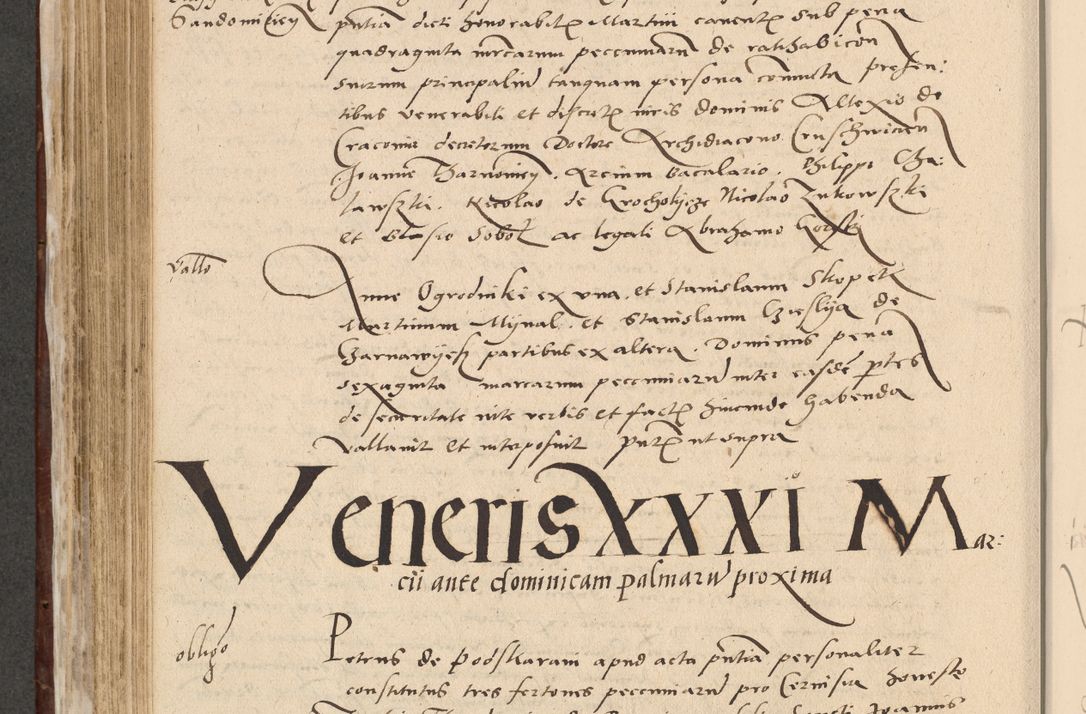 Sandomirien
pntia dicti honorabilis Martini canentis sub pena
quadraginta mrcarum pecuniarum de ratihabicon
suorum principaliu tanquam persona coniuncta presen:
tibus venerabili et discretis viris dominis Alexio de
Cracovia decretorum Doctore Archidiacono Cruschwicien
Joanne Tharnowiey. Arcium bacalario. Philippo Cha:
Nicolao de Grocholycze Nicolao Zukowszki
et Blasio Sobol ac legali Abrahamo Gorski
Vallo
Anne Ogrodniki ex una. et Stanislaum Skopek
Martinum Mynal. et Stanislaum Czieslya de
Czarnawyesz partibus ex altera. Dominus pena
sexaginta marcarum pecuniaru inter easde ptes
de securitate vite verbis et factis hincinde habenda
vallavit et interposuit pntibus ut supra
Veneris XXXI Mar:
cii ante dominicam palmaru proxima
obligo
Petrus de Podskaram apud acta pntia personaliter
constitutus tres fertones pecuniaru pro Cerevisia honeste